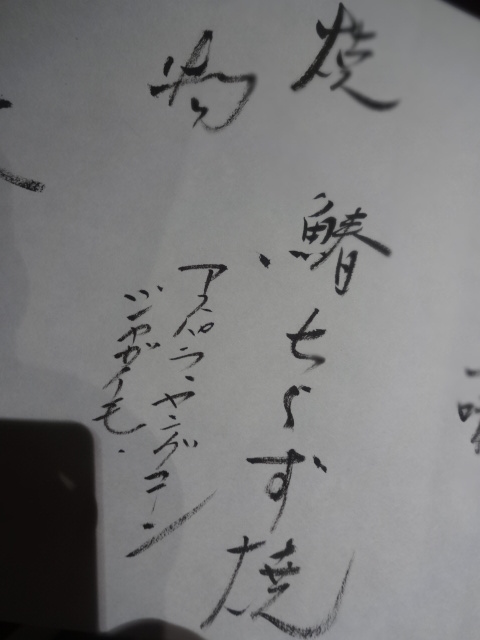 焼物
鰆ちらず焼
アスパラ、ヤングコーン
ジャガイモ、